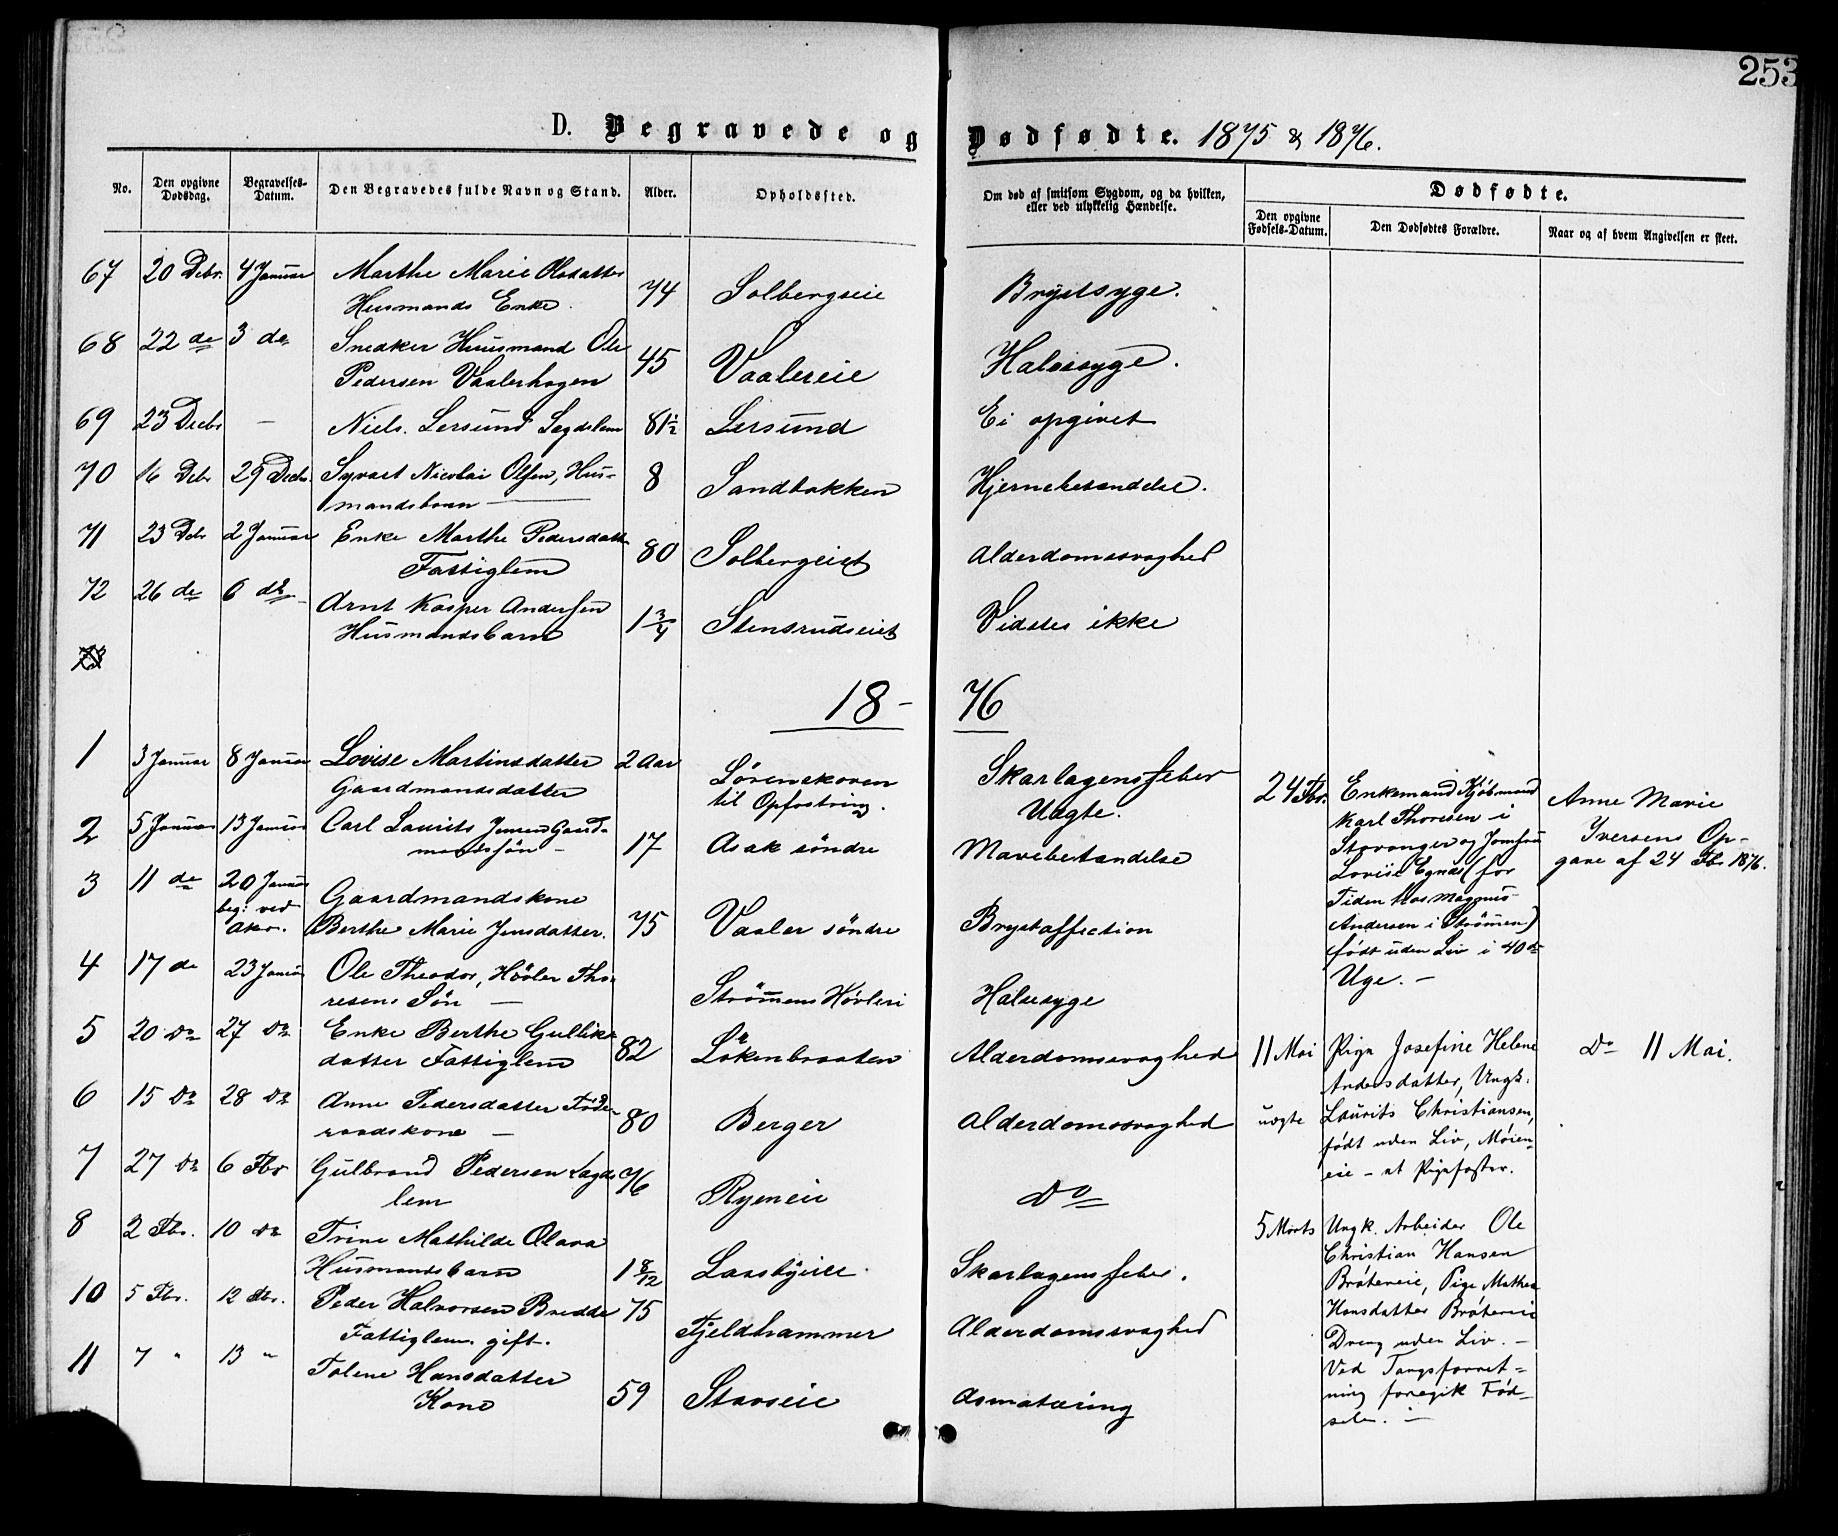 253
D. Begravede og Dødfødte. 1875 & 1876.
No.
Den opgivne Dødsdag.
Begravelses-Datum.
Den Begravedes fulde Navn og Stand.
Alder.
Opholdssted.
Om død af smitsom Sygdom, og da hvilken, eller ved ulykkelig Hændelse.
Dødfødte.
Den opgivne Fødsels-Datum.
Den Dødfødtes Forældre.
Naar og af hvem Angivelsen er skeet.
67 20 Debr. 4 Januar Marthe Marie Olsdatter
Husmands Enke 74 Solbergeie Brystsyge.
68 22 de 3 de Snedker Huusmand Ole
Pedersen Vaalerhagen 45 Vaalereie Halssyge.
69 23 Decbr — Niels Lersund Legdslem 81½ Lersund Ei opgivet
70 16 Debr 29 Decbr. Syvart Nicolai Olsen, Hus-
mandsbarn — 8 Sandbakken Hjernebetændelse.
71 23 Debr 2 Januar Enke Marthe Pedersdatter
Fattiglem 80 Solbergeiet Alderdomssvaghed
72 26 de 6 de Arnt Kasper Andersen
Husmandsbarn 1¾ Stensrudseiet Vidstes ikke
73
18 - 76
1 3 Januar 8 Januar Lovise Martinsdatter 2 Aar
Gaardmandsdatter Lørenskoven
til Opfostring. Skarlagensfeber
Uægte.
2 5 Januar 13 Januar Carl Laurits Jensen Gaard-
mandssøn — 17 Asak søndre Mavebetændelse
3 11 de 20 Januar
beg: ved
Aker. Gaardmandskone
Berthe Marie Jensdatter. 75 Vaaler søndre Brystaffection
4 17 de 23 Januar Ole Theodor, Høvler Tho-
resens Søn — Strømmens Høvleri Halssyge
5 20 Do 27 Do Enke Berthe Gulliks
datter Fattiglem 82 Løkenbraaten Alderdomssvaghed
6 15 Do 28 Do Anne Pedersdatter Føde-
raadskone — 80 Berger Alderdomssvaghed
7 27 Do 6 Fbr Gulbrand Pedersen Lægds
lem 76 Ryeneie Do
8 2 Fbr. 10 Do Trine Mathilde Olava
Husmandsbarn 1 8/12 Laasbyeie Skarlagensfeber.
10 5 Fbr. 12 Fbr. Peder Halvorsen Bredde 75
Fattiglem. gift. Fjeldhammer Alderdomssvaghed
11 7 " 13 " Tolene Hansdatter
Kone 59 Stavseie Asmatæring
24 Fbr. Enkemand Kjøbmand
Karl Thoresen i
Stavanger og Jomfru
Lovise Egnds (for
Tiden hos Magnus
Andersen i Strømmen)
født uden Liv i 40de
Uge. —
Anne Marie
Iversens Op-
gave af 24 Fbr 1876.
11 Mai
uægte
Pige Josefine Helene
Andersdatter, Ungk.
Laurits Christiansen,
født uden Liv, Møien-
eie — et Pigefoster.
Do 11 Mai.
5 Marts Ungk. Arbeider Ole
Christian Hansen
Brøtereie, Pige Mathea
Hansdatter Brøtereie
Dreng uden Liv. —
Ved Tangsforret-
ning foregik Fød-
selen. —